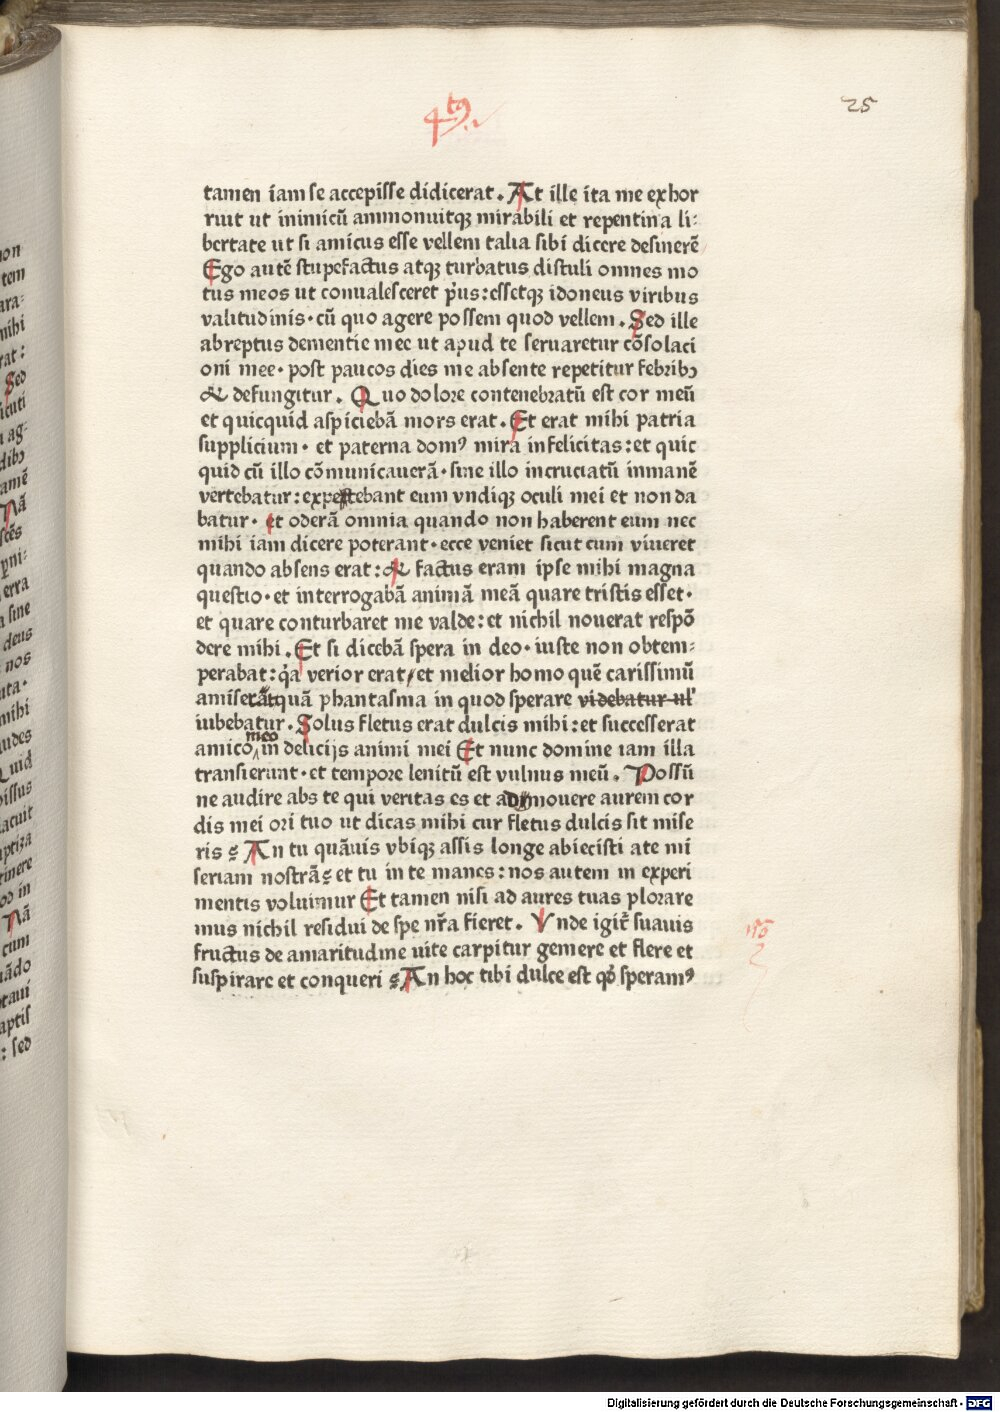 25
tamen iam se accepisse didicerat. At ille ita me exhor
ruit ut inimicū ammonuitqȝ mirabili et repentina li:
bertate ut si amicus esse vellem talia sibi dicere desinerē
Ego autē stupefactus atqȝ turbatus distuli omnes mo
tus meos ut conualesceret p̛us: essetqȝ idoneus viribus
valitudinis· cū quo agere possem quod vellem. Sed ille
abreptus dementie mee ut apud te seruaretur cōsolaci
oni mee· post paucos dies me absente repetitur febribꝫ
& defungitur. Quo dolore contenebratū est cor meū
et quicquid aspiciebā mors erat. Et erat mihi patria
supplicium· et paterna domꝰ mira infelicitas: et quic
quid cū illo cōmunicauerā· sine illo incruciatū inmanē
vertebatur: expectebant eum vndiqȝ oculi mei et non da
batur· et oderā omnia quando non haberent eum nec
mihi iam dicere poterant· ecce veniet sicut cum viueret
quando absens erat: & factus eram ipse mihi magna
questio· et interrogabā animā meā quare tristis esset·
et quare conturbaret me valde: et nichil nouerat respō
dere mihi. Et si dicebā spera in deo· iuste non obtem:
perabat: q̛a verior erat et melior homo quē carissimū
amiserāt quā phantasma in quod sperare videbatur ul'
iubebatur. Solus fletus erat dulcis mihi: et successerat
meo
amico in delicijs animi mei Et nunc domine iam illa
transierunt· et tempore lenitū est vulnus meū. Possū
ne audire abs te qui veritas es et admouere aurem cor
dis mei ori tuo ut dicas mihi cur fletus dulcis sit mise
ris ? An tu quāuis vbiqȝ assis longe abiecisti ate mi
seriam nostrā? et tu in te manes: nos autem in experi
mentis voluimur Et tamen nisi ad aures tuas plorare
mus nichil residui de spe nr̄a fieret. Vnde igit̛ suauis
fructus de amaritudine uite carpitur gemere et flere et
suspirare et conqueri ? An hoc tibi dulce est qđ speramꝰ
Digitalisierung gefördert durch die Deutsche Forschungsgemeinschaft - DFG